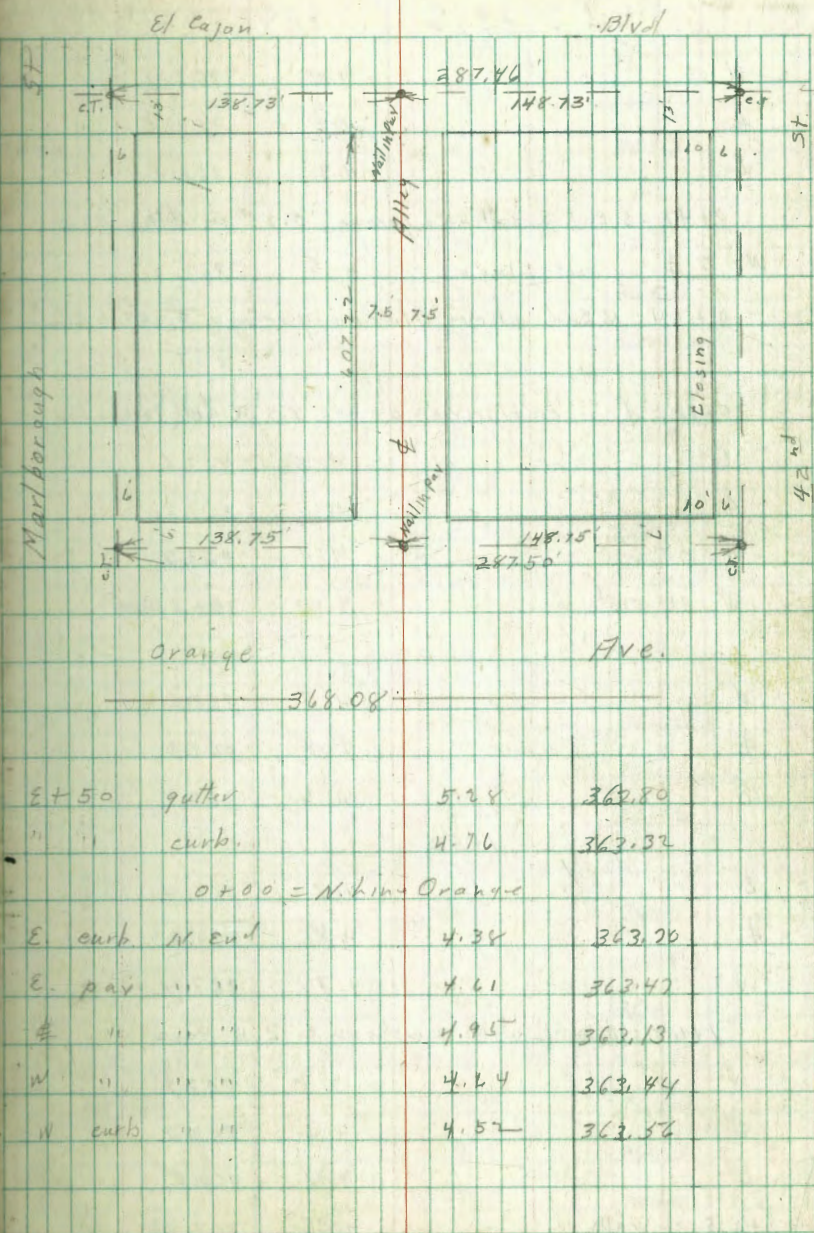 El Cajon Blvd
287.46
C.T. 13 138.73' 148.73' 13 C.T.
St St
6 10 6
Nail in Pav
Alley
607.22
7.5 7.5
Closing
Marlborough
42nd
℄
Nail in Pav
6 10' 6
5 138.75' 148.75' 6
C.T. 287.50' C.T.
Orange Ave.
368.08
E+50 gutter 5.28 362.80
" " curb. 4.76 363.32
0+00 = N. Line Orange
E. curb N. End 4.38 363.70
E. pav " " 4.61 363.47
℄ " " " 4.95 363.13
W " " " 4.64 363.44
W curb " " 4.52 363.56